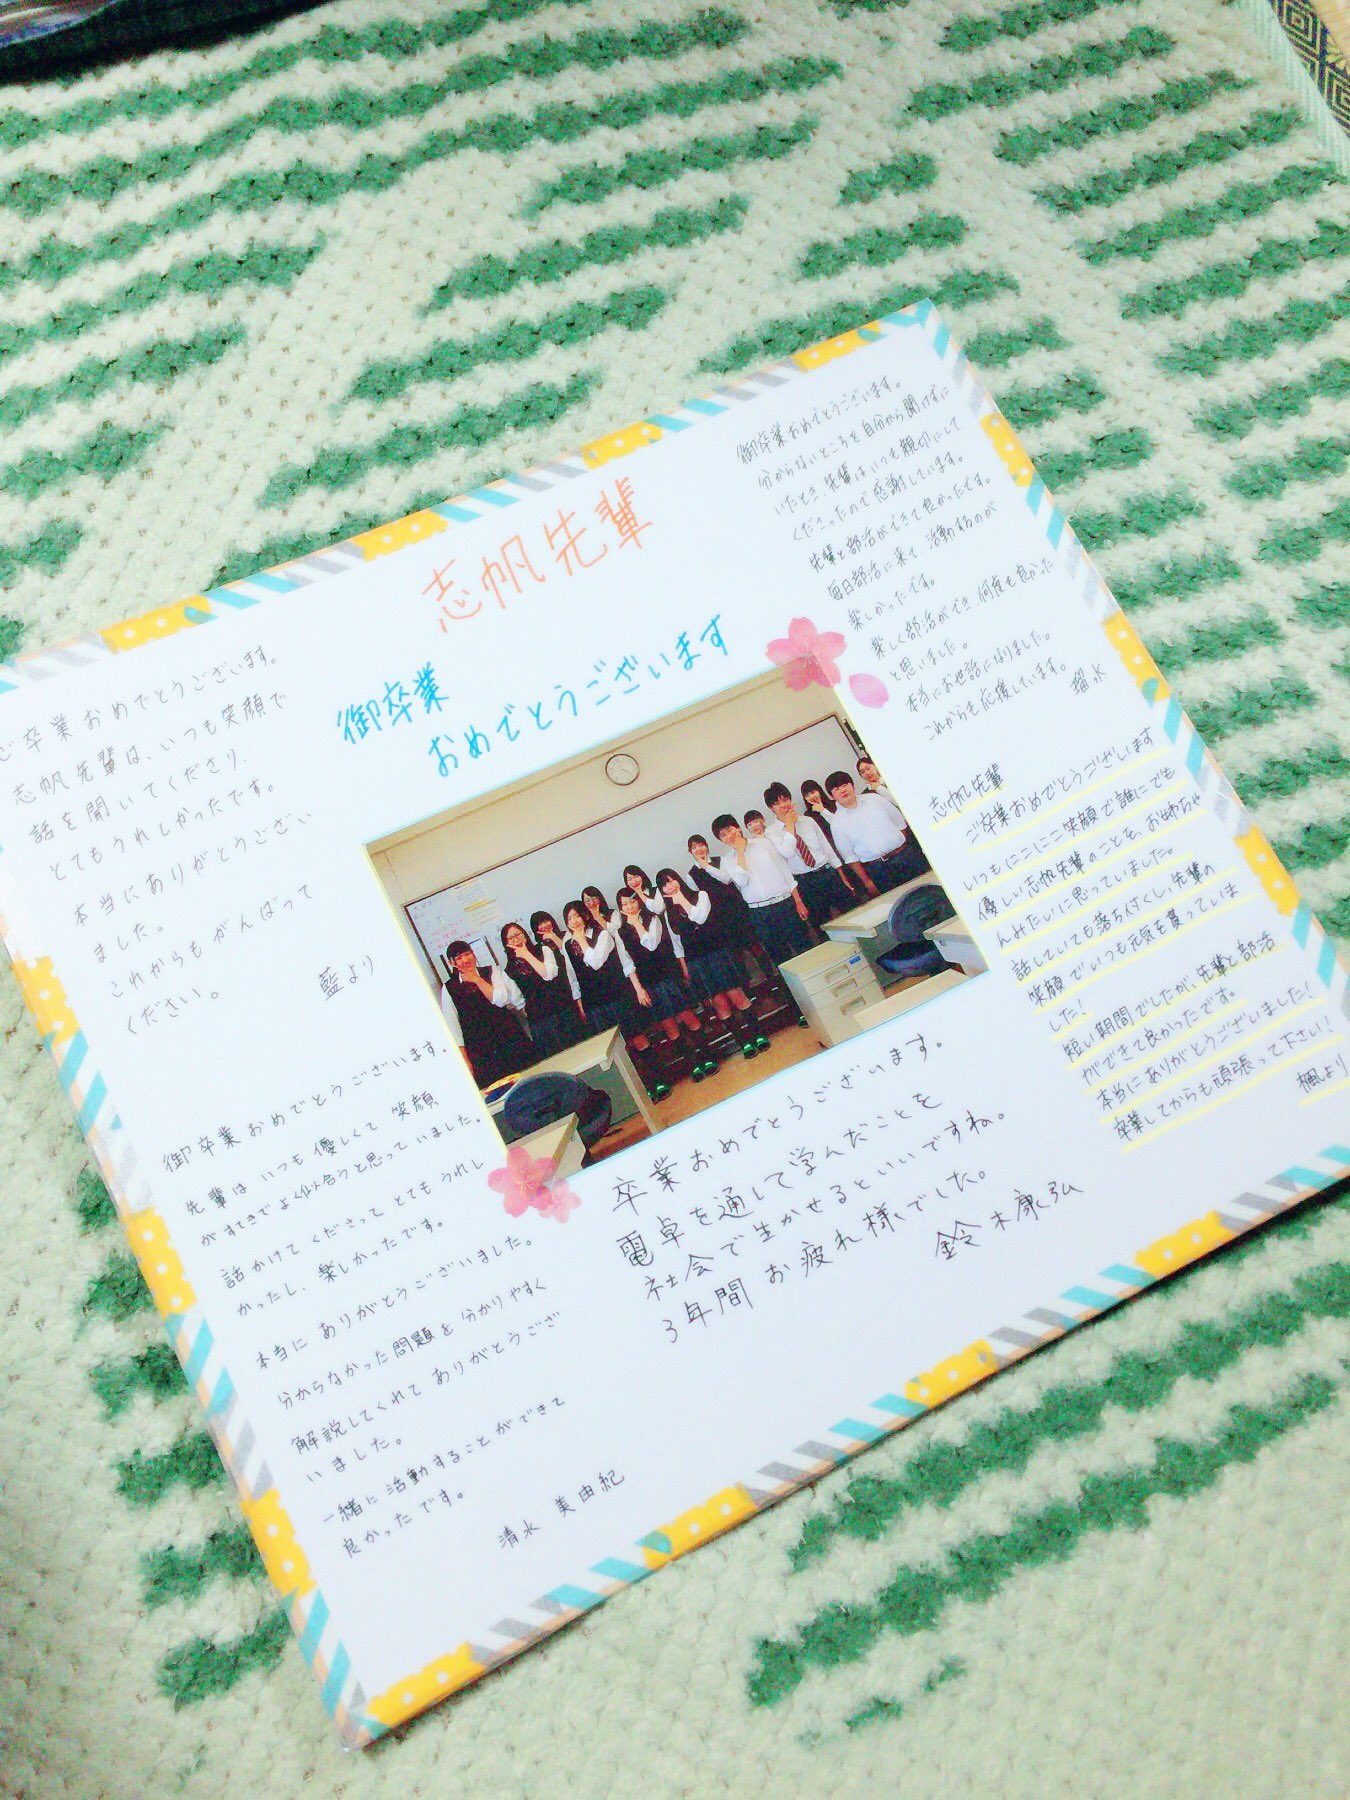 志帆先輩
御卒業
おめでとうございます
ご卒業おめでとうございます。
志帆先輩は、いつも笑顔で
話を聞いてくださり、
とてもうれしかったです。
本当にありがとうござい
ました。
これからもがんばって
ください。
藍より
御卒業おめでとうございます。
先輩はいつも優しくて笑顔
がすてきでよく似合うと思っていました。
話かけてくださってとてもうれし
かったし、楽しかったです。
本当にありがとうございました。
分からなかった問題を分かりやすく
解説してくれてありがとうござ
いました。
一緒に活動することができて
良かったです。
清水 美由紀
卒業おめでとうございます。
電卓を通して学んだことを
社会で生かせるといいですね。
3年間お疲れ様でした。
鈴木康弘
御卒業おめでとうございます。
分からないところを自分から聞けずに
いたとき、先輩はいつも親切にして
くださったので感謝しています。
先輩と部活ができて良かったです。
毎日部活に来て活動するのが
楽しかったです。
楽しく部活ができ、何度も良かった
と思いました。
本当にお世話になりました。
これからも応援しています。
瑠水
志帆先輩
ご卒業おめでとうございます
いつもにこにこ笑顔で誰にでも
優しい志帆先輩のことを、お姉ちゃ
んみたいに思っていました。
話していても落ち付くし、先輩の
笑顔でいつも元気を貰っていま
した!
短い期間でしたが、先輩と部活
ができて良かったです。
本当にありがとうございました!
卒業してからも頑張って下さい!
楓より